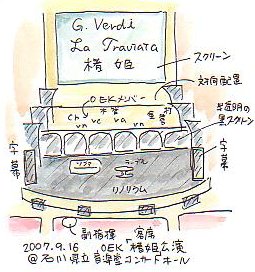 G. Verdi
La Traviata
椿姫
スクリーン
対向配置
OEKメンバー
木管
Cb
金管
vn vc va vn
半透明の
黒スクリーン
字幕
字幕
ソファ
テーブル
リノリウム
副指揮
客席
2007.9.16 OEK 椿姫公演
@石川県立音楽堂コンサートホール